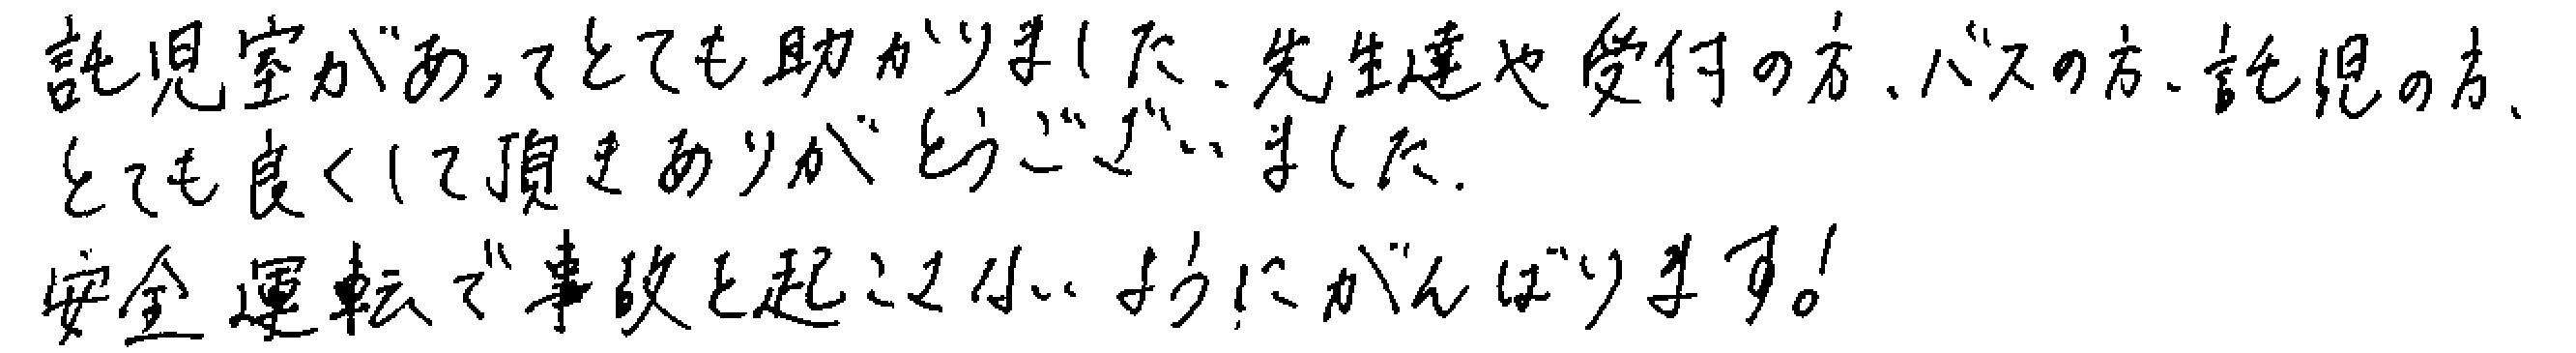 託児室があってとても助かりました、先生達や受付の方、バスの方、託児の方、
とても良くして頂きありがとうございました.
安全運転で事故を起こさないようにがんばります!